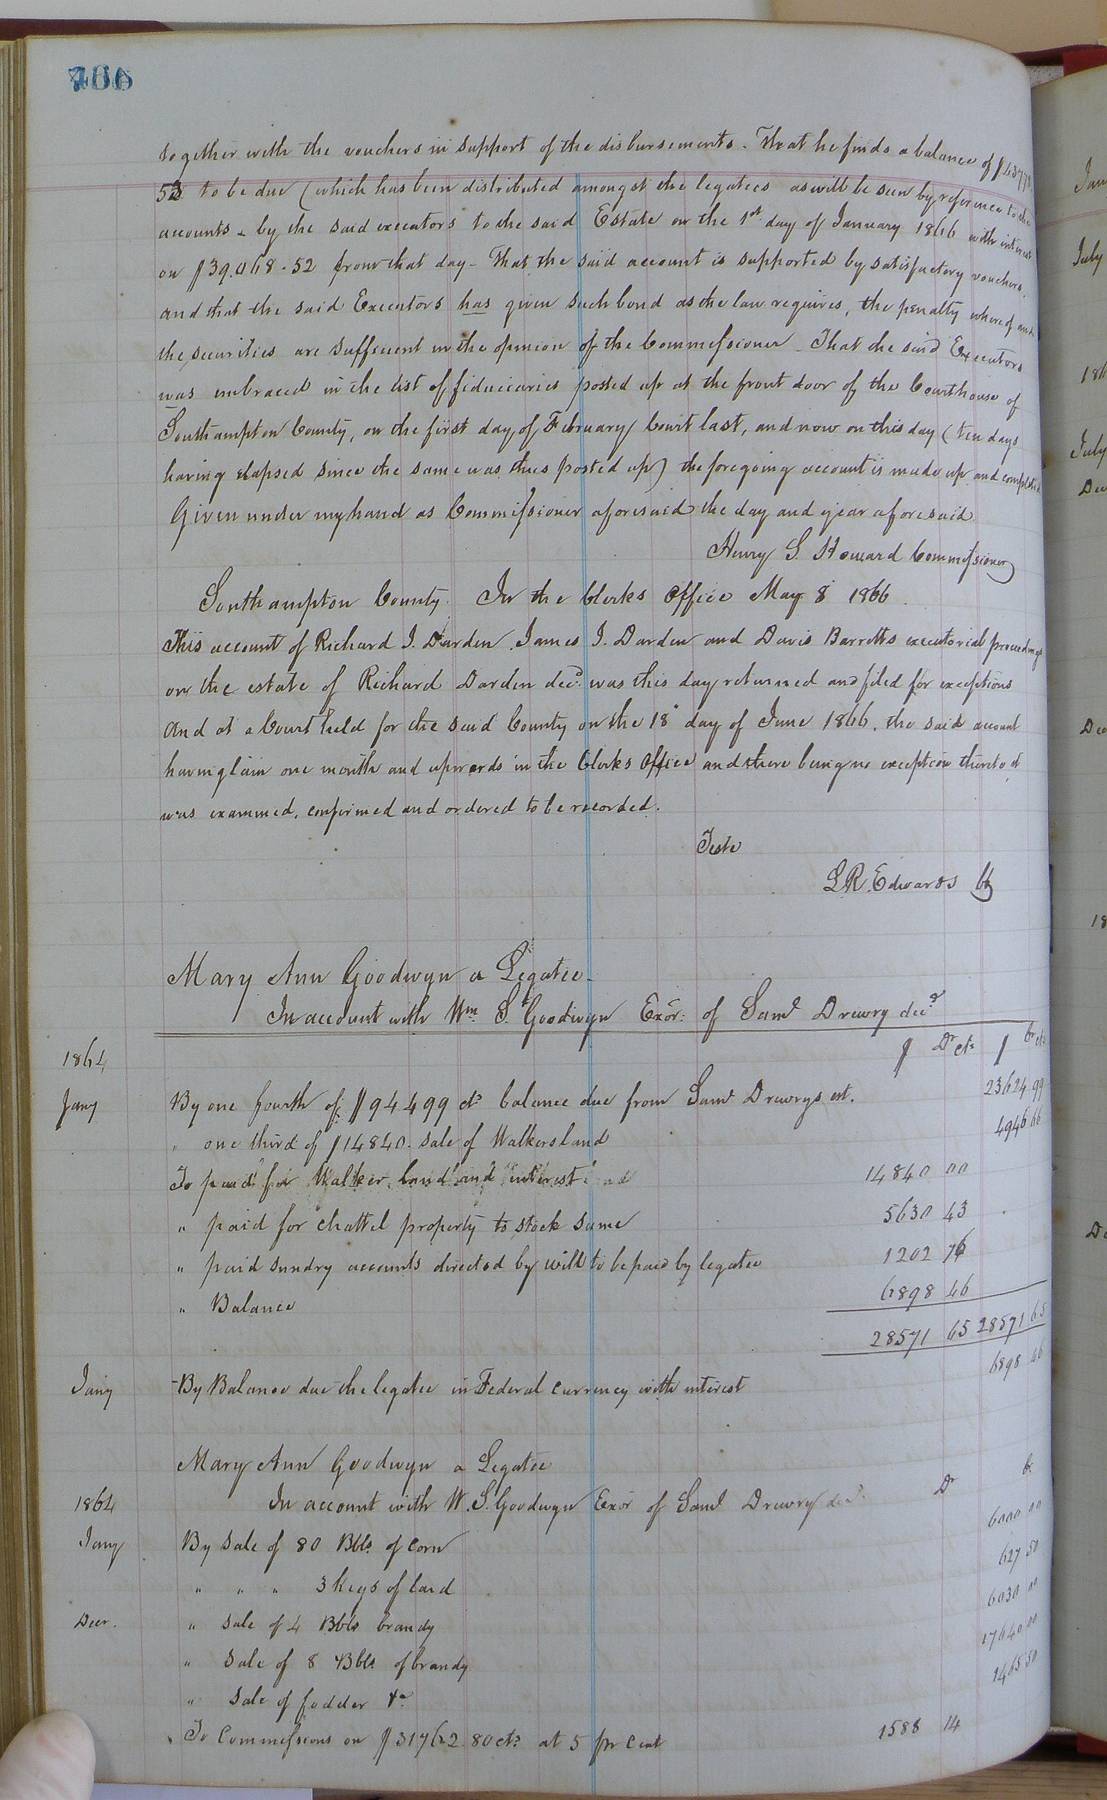 together with the vouchers in support of the disbursements. That he finds a balance of $
53 to be due (which has been distributed amongst the legatees as will be seen by reference to the
accounts - by the said executors to the said Estate on the 1st day of January 1866 with interest
on $39.068.52 from that day - That the said account is supported by satisfactory vouchers,
and that the said Executors has given such bond as the law requires, the penalty whereof and
the securities are sufficient in the opinion of the Commissioner - That the said Executors
was embraced in the list of fiduciaries posted up at the front door of the Courthouse of
Southampton County, on the first day of February Court last, and now on this day (ten days
having elapsed since the same was thus posted up) the foregoing account is made up and completed
Given under my hand as Commissioner aforesaid the day and year aforesaid
Henry S. Howard Commissioner
Southampton County. In the Clerks Office May 8 1866.
This account of Richard J. Darden, James J. Darden and Davis Barretts executorial proceedings
on the estate of Richard Darden decd. was this day returned and filed for exceptions
And at a Court held for the said County on the 18" day of June 1866, the said account
having lain one month and upwards in the Clerks Office and there being no exception thereto it
was examined, confirmed and ordered to be recorded.
Teste
L.R. Edwards Clk
Mary Ann Goodwyn a Legatee -
In account with Wm S. Goodwyn Exor: of Saml Drewry decd
1864 $ Dr cts $ Cr cts
Jany By one fourth of $94.499 cts balance due from Saml Drewrys est. 23624 99
" one third of $14840. sale of Walkers land 4946 66
To paid for Walker land and interest 14840 00
" paid for chattel property to stock same 5630 43
" paid sundry accounts directed by will to be paid by legatee 1202 76
" Balance 6898 46
28571 65 28571 65
Jany By Balance due the legatee in Federal currency with interest 6898 46
Mary Ann Goodwyn a Legatee
1864 In account with W. S. Goodwyn Exor of Saml Drewry decd. Dr Cr
Jany By sale of 80 Bbls of corn 6000 00
" " " 3 kegs of lard 627 50
Decr. " sale of 4 Bbls brandy 6030 00
" sale of 8 Bbls of brandy 17640 00
" sale of fodder &c 1465 50
To Commissions on $31762 80 cts at 5 pr cent 1588 14
Jan
July
186
July
Dec
Dec
18
De